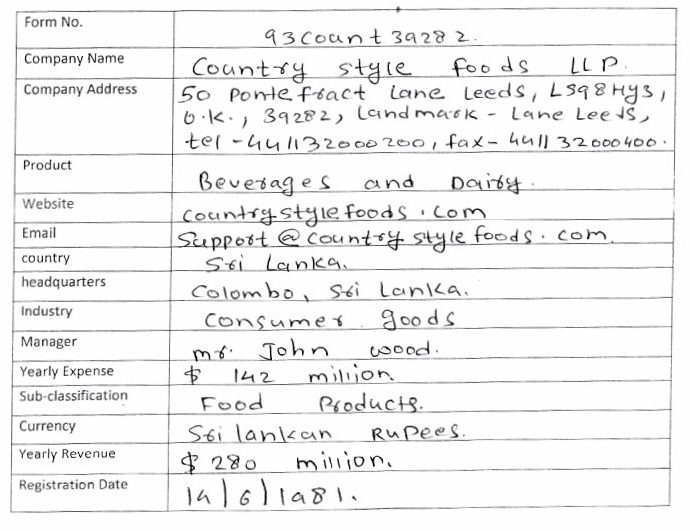 Form No. 93Count39282.
Company Name Country style foods LLP.
Company Address 50 Pontefract Lane Leeds, LS98HY3,
U.K., 39282, Landmark - Lane Leeds,
tel - 441132000200, fax - 441132000400.
Product Beverages and Dairy.
Website countrystylefoods.com
Email Support@countrystylefoods.com.
country Sri Lanka.
headquarters Colombo, Sri Lanka.
Industry Consumer goods
Manager mr. John wood.
Yearly Expense $ 142 million
Sub-classification Food Products.
Currency Sri lankan Rupees.
Yearly Revenue $ 280 million.
Registration Date 14/6/1981.